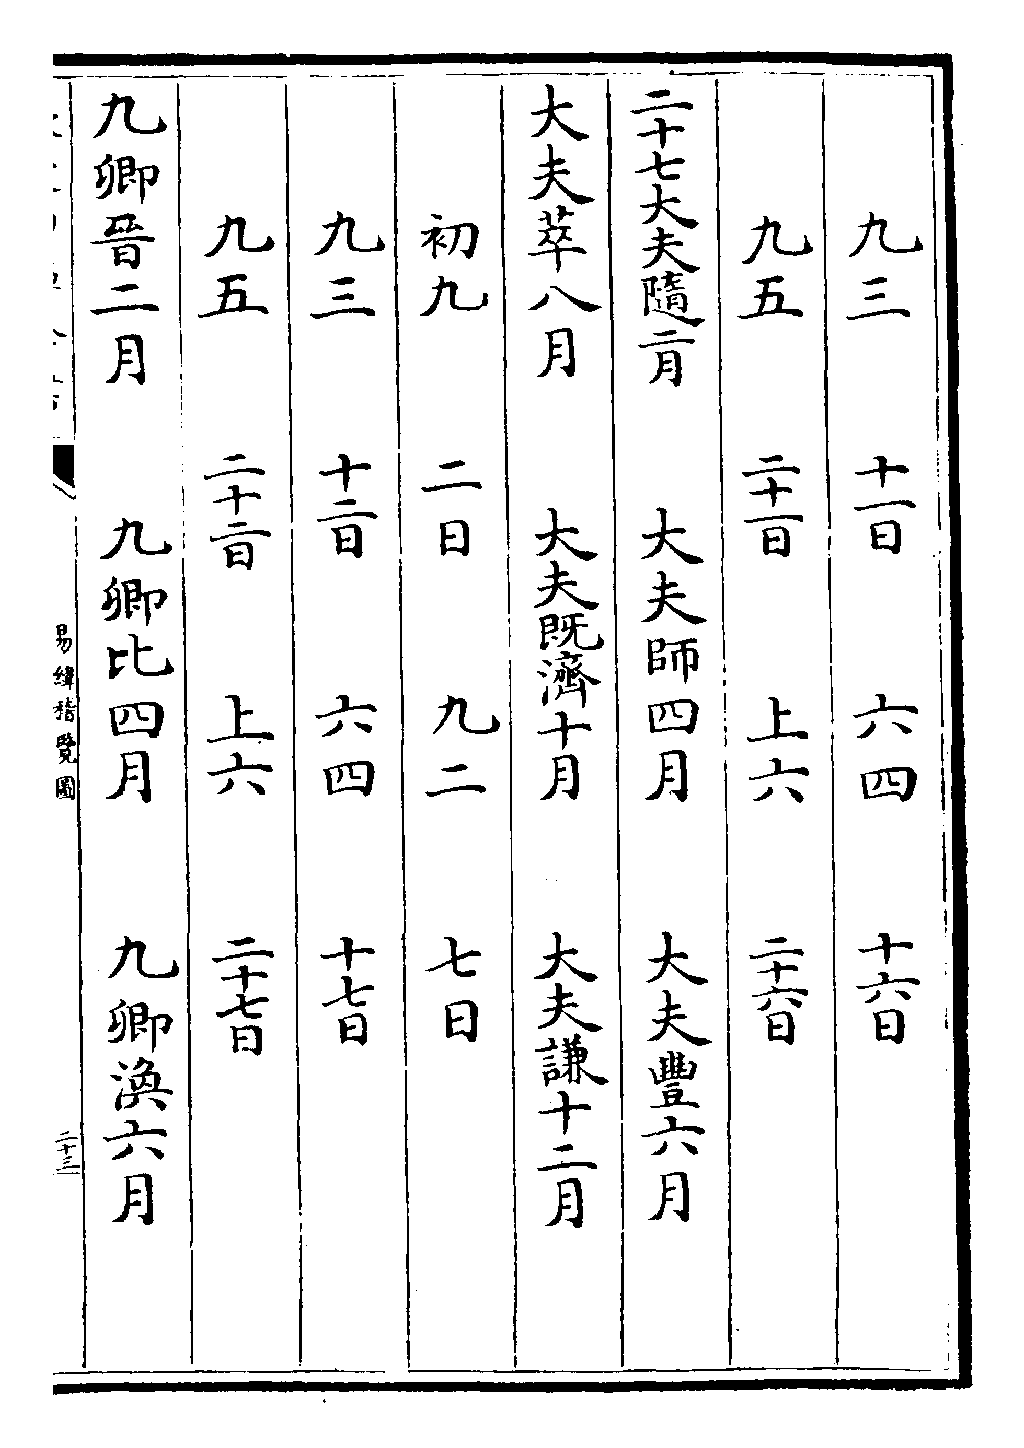 九三　十一日　六四　十六日
九五　二十一日　上六　二十六日
二十七大夫隨二月　大夫師四月　大夫豐六月
大夫萃八月　大夫既濟十月　大夫謙十二月
初九　二日　九二　七日
九三　十二日　六四　十七日
九五　二十二日　上六　二十七日
九卿晉二月　九卿比四月　九卿渙六月
易緯稽覽圖　二十三